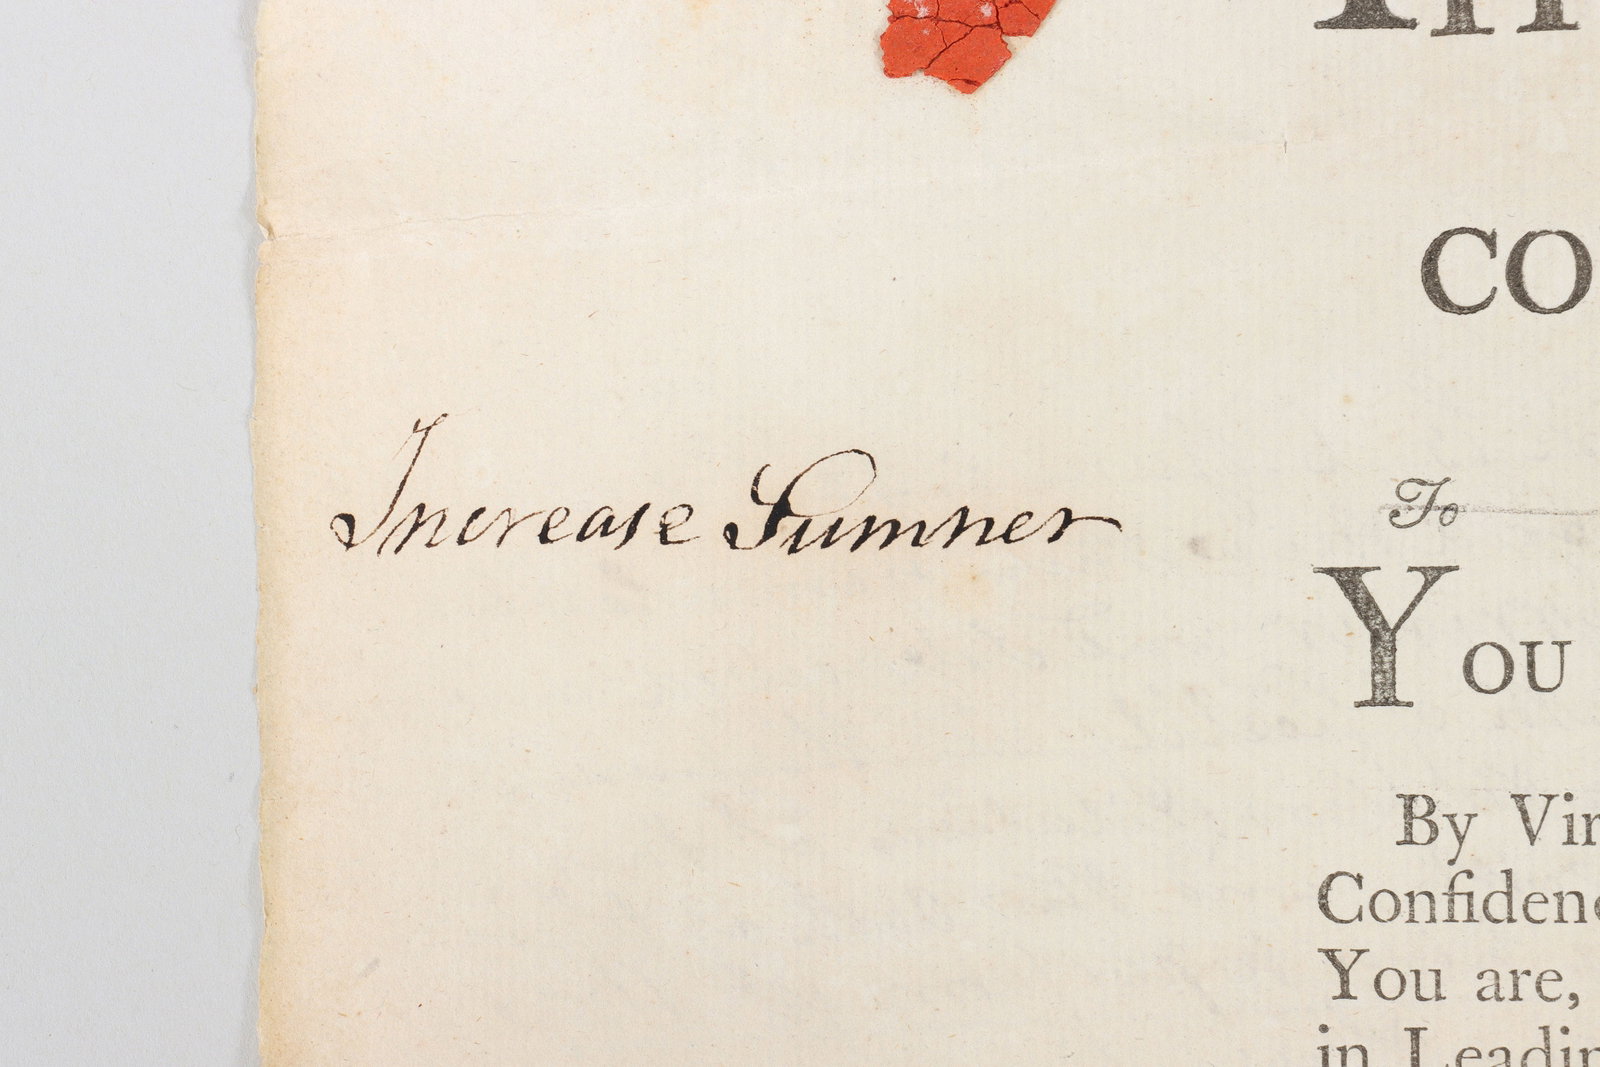 CO
Increase Sumner
To
YOU
By Vir
Confidenc
You are,
in Leadin